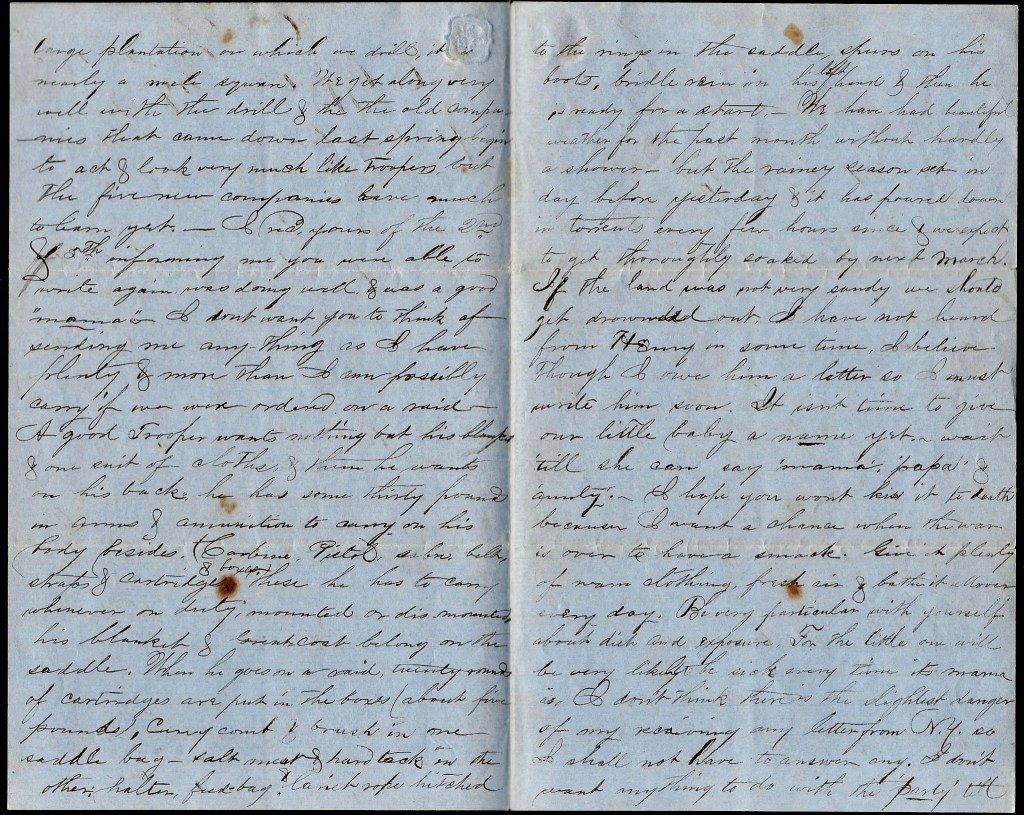 large plantation on which we drill, it is
nearly a mile square. We get along very
well with the drill & the the old compa-
-nies that came down last spring begin
to act & look very much like Troopers, but
the five new companies have much
to learn yet. — I recd. yours of the 2nd
& 5th informing me you were able to
write again, was doing well & was a good
"mama" I dont want you to think of
sending me any thing as I have
plenty & more than I can possibly
carry if we were ordered on a raid —
A good Trooper wants nothing but his blanket
& one suit of cloths, & them he wants
on his back. he has some thirty pounds
in arms & amunition to carry on his
body besides. (Carbine, Pistol, sabre, belts,
straps & cartridge & boxes) These he has to carry
whenever on duty, mounted or dis mounted
his blanket & Great coat belong on the
saddle. When he goes on a raid, twenty rounds
of cartridges are put in the boxes (about five
pounds), Curry comb & brush in one
saddle bag — salt meat & hard tack in the
other, halter, feed-bag & lariet rope hitched
to the rings in the saddle, spurs on his
boots, bridle rein in his left hand & then he
is ready for a start. — We have had beautiful
weather for the past month without hardly
a shower — but the rainey season set in
day before yesterday & it has poured down
in torrents every few hours since & we expect
to get thoroughly soaked by next March.
If the land was not very sandy we should
get drownded out. I have not heard
from Henry in some time, I believe
though I owe him a letter so I must
write him soon. It isn't time to give
our little baby a name yet, — wait
'till she can say 'mama', 'papa' &
'aunty'. — I hope you wont kiss it to death
because I want a chance when the war
is over to have a smack. Give it plenty
of warm clothing, fresh air & bathe it all over
every day. Be very particular with yourself
about diet and exposure. For the little one will
be very likely to be sick every time its mama
is. I don't think there is the slightest danger
of my receiving any letter from N.Y. so
I shall not have to answer any. I don't
want anything to do with the 'party' till